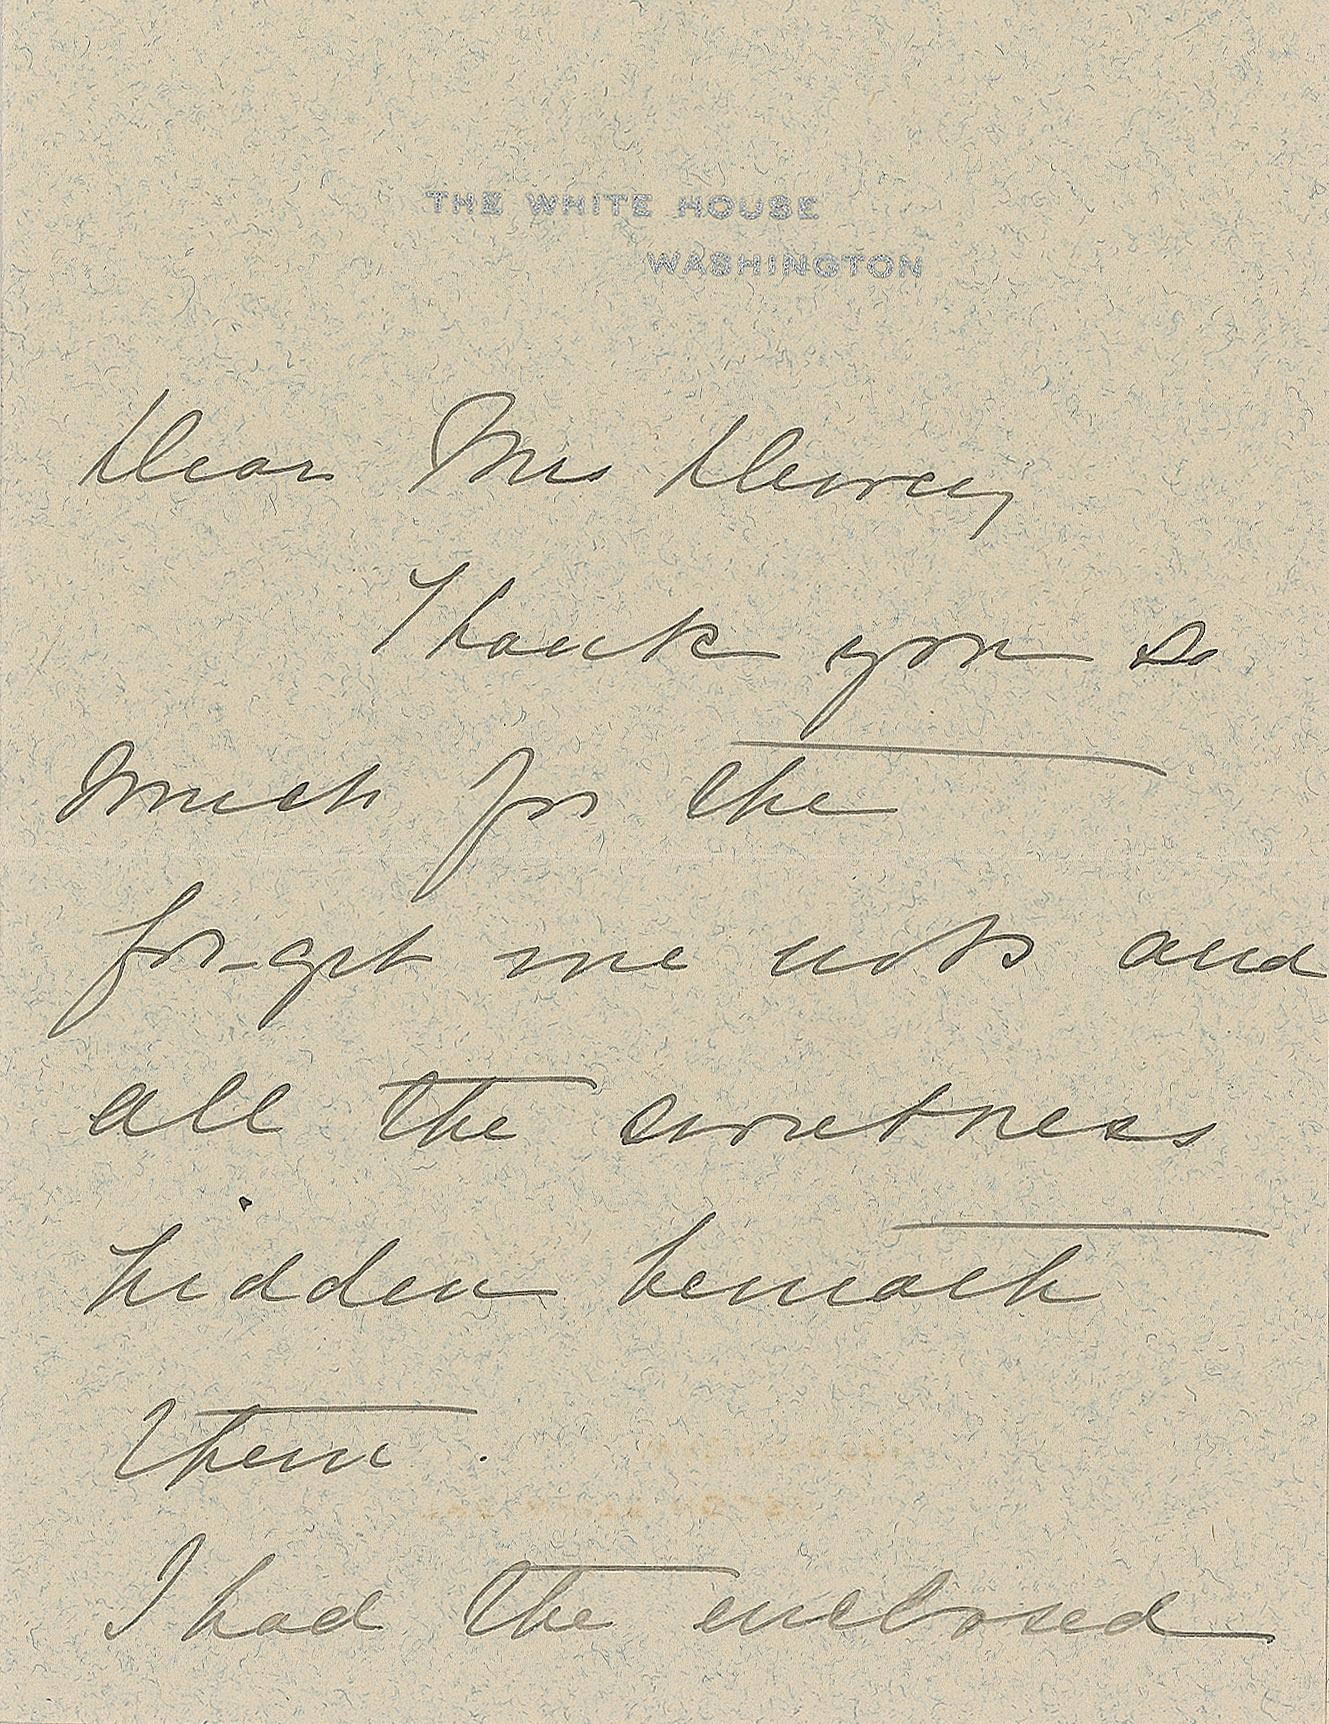 THE WHITE HOUSE
WASHINGTON
Dear Mrs Dewey
Thank you so
much for the
for-get me nots and
all the sweetness
hidden beneath
them.
I had the enclosed